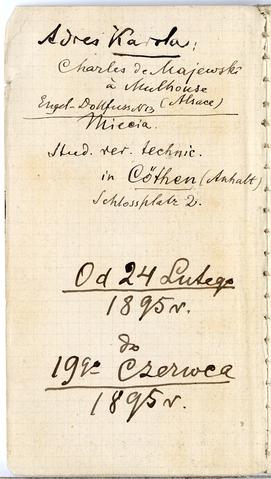 Adres Karola:
Charles de Majewski
à Mulhouse
Engel-Dollfuss No 3 (Alsace)
Miecia.
Stud. rer. technic.
in Cöthen (Anhalt)
Schlossplatz 2.
Od 24 Lutego
1895 r.
do
19go Czerwca
1895 r.